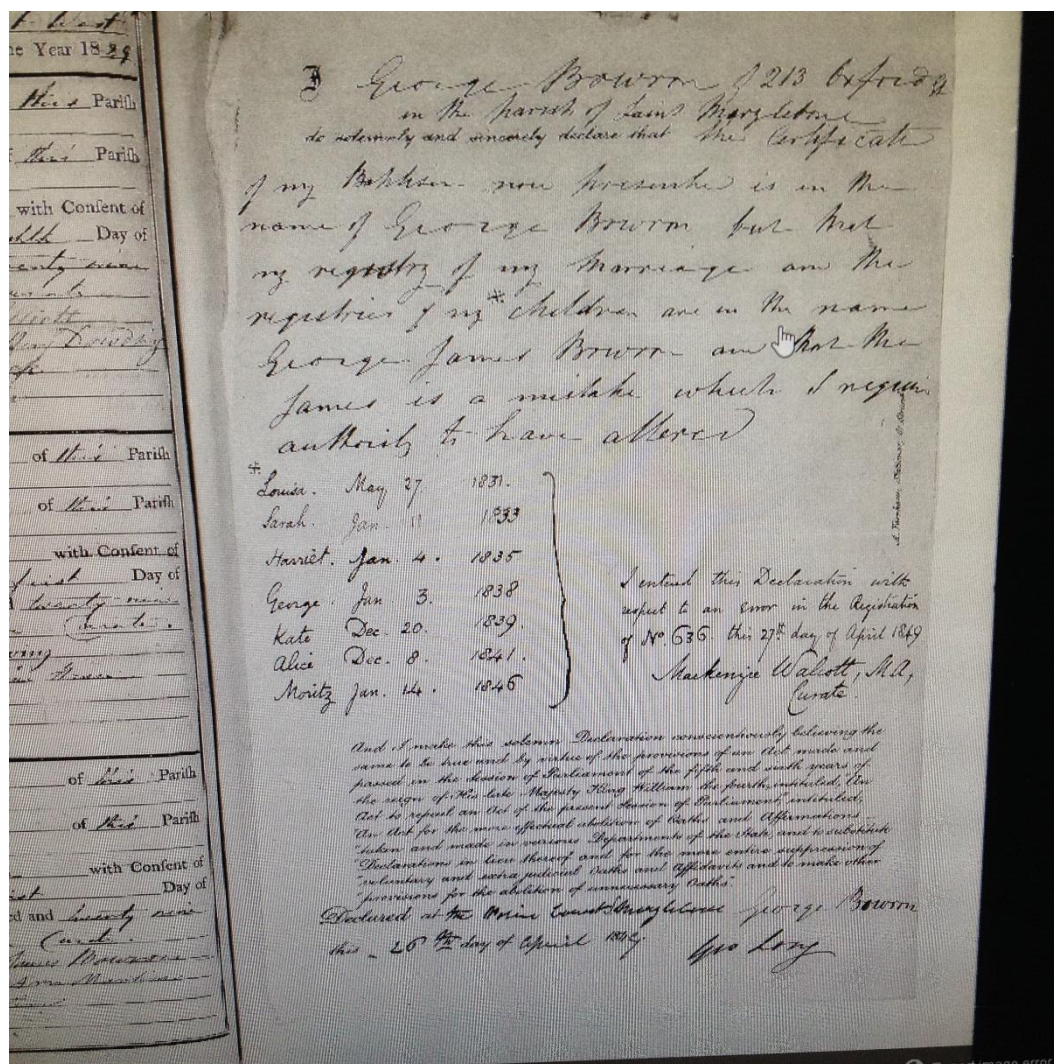 t West
he Year 1829
this Parish
this Parish
with Consent of
Day of
enty nine
of this Parish
of this Parish
with Consent of
first Day of
twenty nine
Curate.
of this Parish
of this Parish
with Consent of
Day of
ed and twenty nine
I George Bowron of 213 Oxford St
in the Parish of Saint Marylebone
do solemnly and sincerely declare that the Certificate
of my Baptism now presented is in the
name of George Bowron but that
my registry of my Marriage and the
registries of my * children are in the name
George James Bowron and that the
James is a mistake which I require
authority to have altered
*
Louisa. May 27. 1831.
Sarah. Jan. 11 1833
Harriet. Jan. 4. 1835
George. Jan 3. 1838
Kate Dec. 20. 1839.
Alice Dec. 8. 1841.
Moritz Jan. 14. 1846
I entered this Declaration with
respect to an error in the Registration
of No. 636. this 27th day of April 1849
Mackenzie Walcott, M.A,
Curate.
And I make this solemn Declaration conscientiously believing the
same to be true and by virtue of the provisions of an Act made and
passed in the Session of Parliament of the fifth and sixth years of
the reign of His late Majesty King William the fourth, intituled, "An
Act to repeal an Act of the present Session of Parliament, intituled,
"An Act for the more effectual abolition of Oaths and Affirmations
"taken and made in various Departments of the State, and to substitute
"Declarations in lieu thereof and for the more entire suppression of
"voluntary and extra judicial Oaths and Affidavits and to make other
"provisions for the abolition of unnecessary Oaths"
Declared at the Police Court Marylebone George Bowron
this 26th day of April 1849 Geo Long